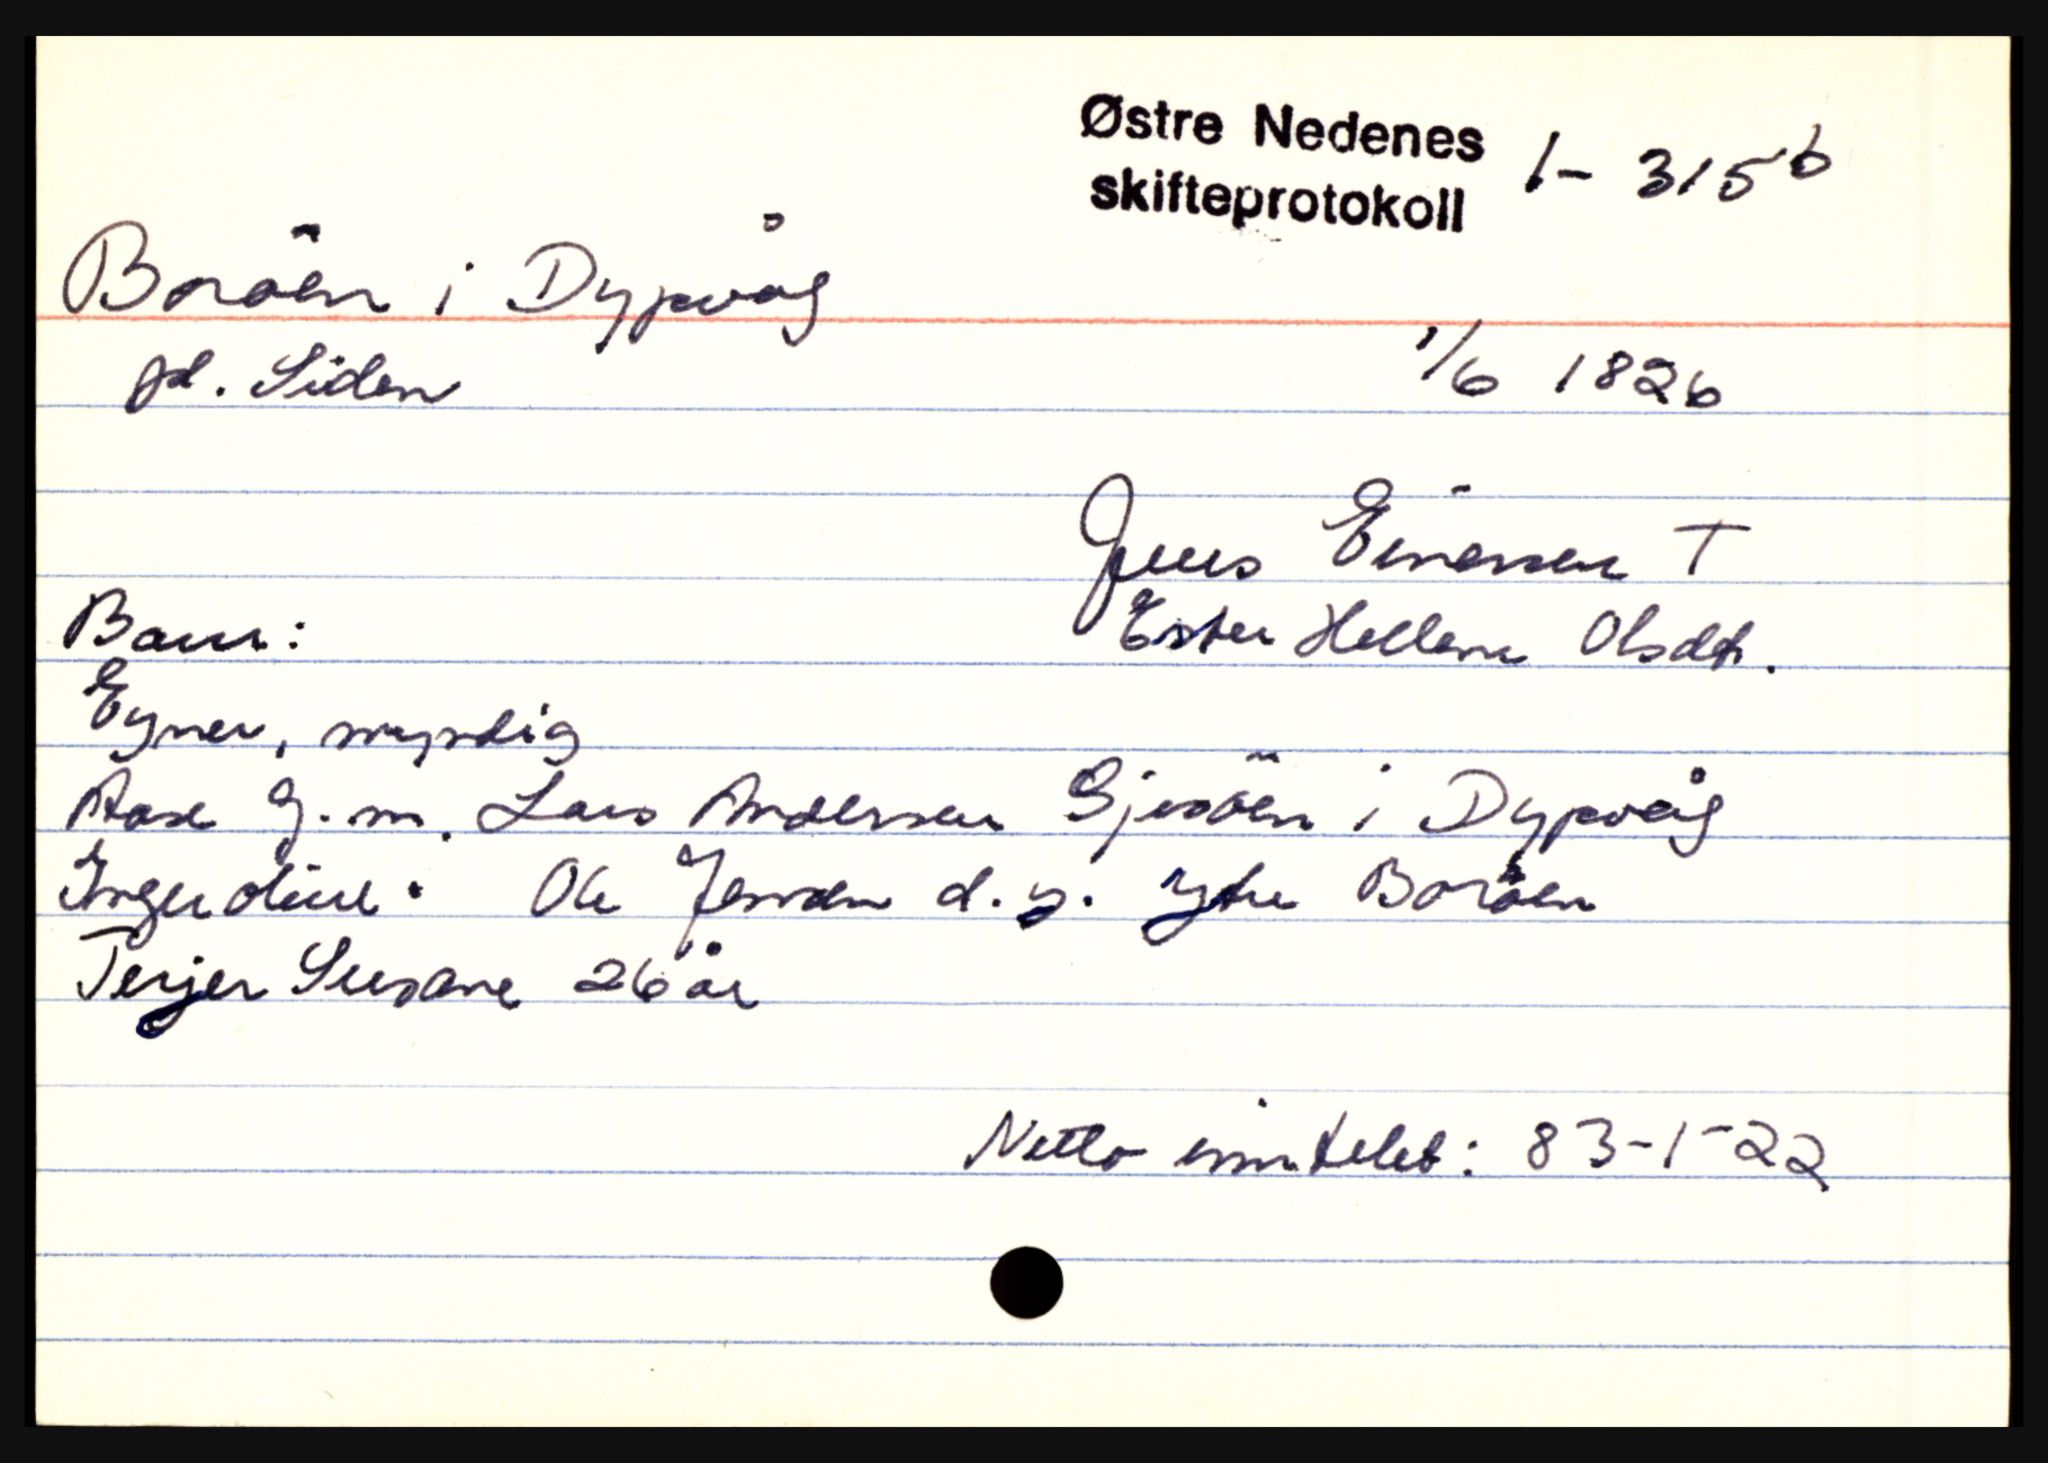 Østre Nedenes
skifteprotokoll 1- 315b
Boröen i Dypvåg
pl. Siden
1/6 1826
Jens Einersen T
Ester Hellene Olsdtr.
Barn:
Eyner, myndig
Aase g.m. Lars Andersen Gjesöen i Dypvåg
Ingeroline " Ole Jensen d.y. Ytre Boröen
Terjer Susane 26 år
Netto inntekt: 83-1-22